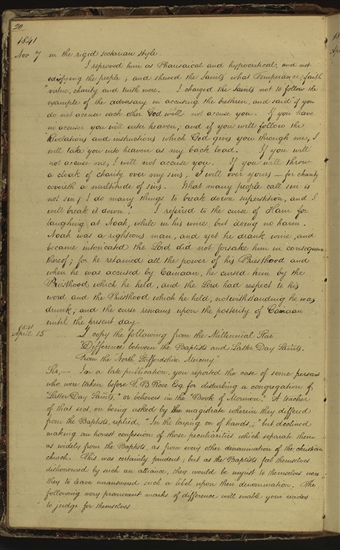 20
1841
Nov 7 in the rigid sectarian style.
I reproved him as Pharisaical and hypocritical, and not
edifying the people; and shewed the Saints what Temperance, faith
virtue, charity and truth were. I charged the Saints not to follow the
example of the adversary in accusing the brethren, and said if you
do not accuse each other God will not accuse you. If you have
no accuser you will enter heaven, and if you will follow the
Revelations and instructions which God gives you through me, I
will take you into heaven as my back load. If you will
not accuse me, I will not accuse you. If you will throw
a cloak of charity over my sins, I will over yours — for charity
covereth a multitude of sins. What many people call sin is
not sin; I do many things to break down superstition, and I
will break it down. I referred to the curse of Ham for
laughing at Noah, while in his wine, but doing no harm.
Noah was a righteous man, and yet he drank wine and
became intoxicated; the Lord did not forsake him in consequence
thereof; for he retained all the power of his Priesthood, and
when he was accused by Canaan, he cursed him by the
Priesthood which he held, and the Lord had respect to his
word, and the Priesthood which he held, notwithstanding he was
drunk, and the curse remains upon the posterity of Canaan
until the present day.
April 15 I copy the following from the Millennial Star
"Difference between the Baptists and Latter Day Saints.
From the North Staffordshire Mercury"
Sir,— In a late publication, you reported the case of some persons
who were taken before T. B. Rose Esq. for disturbing a congregation of
"Latter Day Saints," or believers in the "Book of Mormon." A teacher
of that sect, on being asked by the magistrate wherein they differed
from the Baptists, replied, "In the laying on of hands," but declined
making an honest confession of those peculiarities which separate them
as widely from the Baptists, as from every other denomination of the christian
church. This was certainly prudent; but as the Baptists feel themselves
dishonoured by such an alliance, they would be unjust to themselves were
they to leave unanswered such a libel upon their denomination. The
following very prominent marks of difference will enable your readers
to judge for themselves